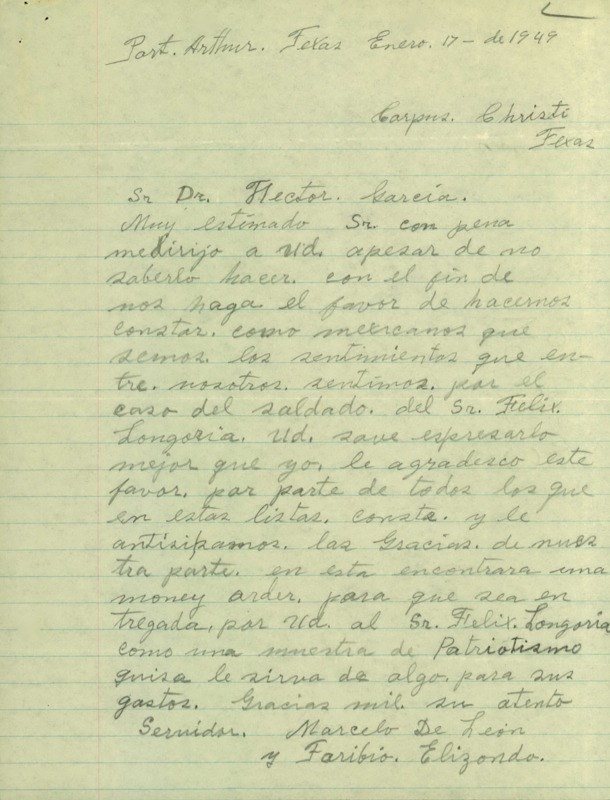 Port. Arthur. Texas Enero. 17 - de 1949
Corpus. Christi
Texas
Sr Dr. Hector. Garcia.
Muy estimado Sr. con pena
medirijo a Ud. apesar de no
saberlo hacer. con el fin de
nos haga el favor de hacernos
constar. como mexicanos que
semos. los sentimientos que en-
tre. nosotros. sentimos. por el
caso del saldado. del Sr. Felix.
Longoria. Ud. save espresarlo
mejor que yo. le agradesco este
favor. por parte de todos los que
en estas listas. consta. y le
antisipamos. las Gracias. de nues
tra parte. en esta encontrara una
money order. para que sea en
tregada, por Ud. al Sr. Felix. Longoria
como una muestra de Patriotismo
quisa le sirva de algo. para sus
gastos. Gracias mil. su atento
Servidor. Marcelo De Leon
y Faribio. Elizondo.